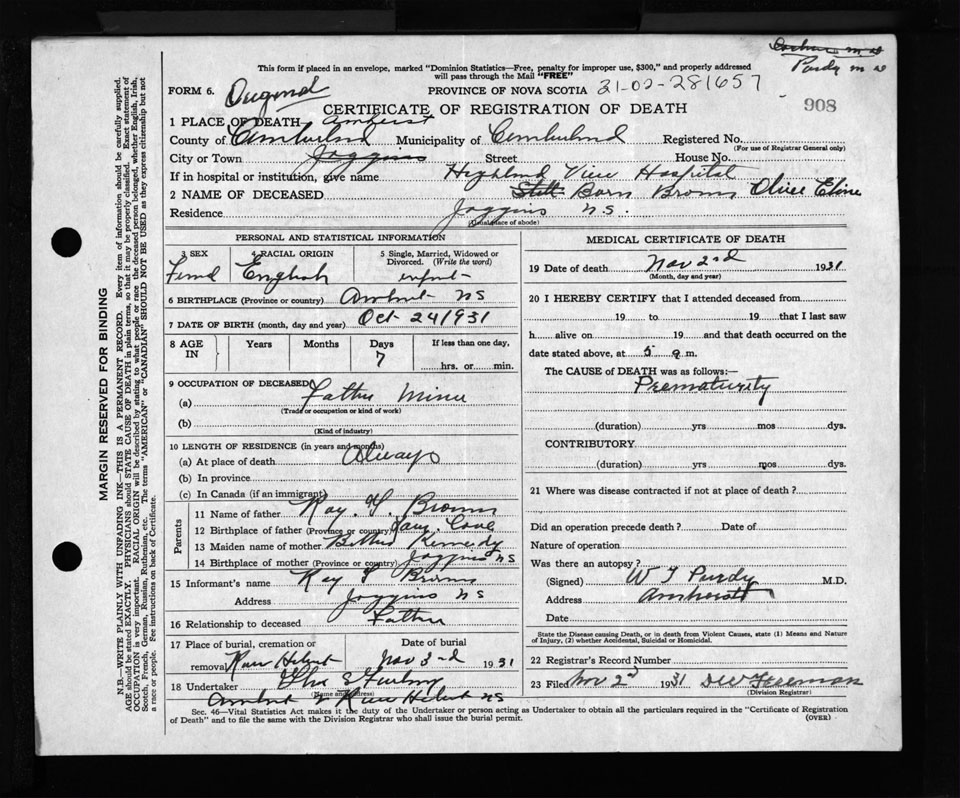 Purdy m d
This form if placed in an envelope, marked "Dominion Statistics—Free, penalty for improper use, $300," and properly addressed
will pass through the Mail "FREE"
FORM 6. PROVINCE OF NOVA SCOTIA 21-02-281657
CERTIFICATE OF REGISTRATION OF DEATH 908
1 PLACE OF DEATH Amherst
County of Cumberland Municipality of Cumberland Registered No.
(For use of Registrar General only)
City or Town Joggins Street House No.
If in hospital or institution, give name Highland View Hospital
2 NAME OF DECEASED Still Born Brown Olive Eline
Residence Joggins N.S.
(Usual place of abode)
PERSONAL AND STATISTICAL INFORMATION
3 SEX 4 RACIAL ORIGIN 5 Single, Married, Widowed or
Divorced. (Write the word)
English infant
6 BIRTHPLACE (Province or country) Amherst NS
7 DATE OF BIRTH (month, day and year) Oct 24 1931
8 AGE IN Years Months Days If less than one day,
7 hrs. or min.
9 OCCUPATION OF DECEASED
(a) Father Miner
(Trade or occupation or kind of work)
(b)
(Kind of industry)
10 LENGTH OF RESIDENCE (in years and months)
(a) At place of death Always
(b) In province
(c) In Canada (if an immigrant)
Parents
11 Name of father Ray. Brown
12 Birthplace of father (Province or country) Cove
13 Maiden name of mother Kennedy
14 Birthplace of mother (Province or country) Joggins NS
15 Informant's name Ray Brown
Address Joggins NS
16 Relationship to deceased Father
17 Place of burial, cremation or Date of burial
removal River Hebert Nov 3rd 1931
18 Undertaker
(Name and address)
Amherst River Hebert NS
MEDICAL CERTIFICATE OF DEATH
19 Date of death Nov 2nd 1931
(Month, day and year)
20 I HEREBY CERTIFY that I attended deceased from
19 to 19 that I last saw
h alive on 19 and that death occurred on
date stated above, at 5 a m.
The CAUSE of DEATH was as follows:—
Prematurity
(duration) yrs mos dys.
CONTRIBUTORY
(duration) yrs mos dys.
21 Where was disease contracted if not at place of death?
Did an operation precede death? Date of
Nature of operation
Was there an autopsy?
(Signed) W T Purdy M.D.
Address Amherst
Date
State the Disease causing Death, or in death from Violent Causes, state (1) Means and Nature
of Injury, (2) whether Accidental, Suicidal or Homicidal.
22 Registrar's Record Number
23 Filed Nov 2d 1931
(Division Registrar)
Sec. 46—Vital Statistics Act makes it the duty of the Undertaker or person acting as Undertaker to obtain all the particulars required in the "Certificate of Registration
of Death" and to file the same with the Division Registrar who shall issue the burial permit. (OVER)
MARGIN RESERVED FOR BINDING
N.B.—WRITE PLAINLY WITH UNFADING INK—THIS IS A PERMANENT RECORD. Every item of information should be carefully supplied.
AGE should be stated EXACTLY. PHYSICIANS should STATE CAUSE OF DEATH in plain terms, so that it may be properly classified. Exact statement of
OCCUPATION is very important. RACIAL ORIGIN will be described by stating to what people or race the deceased person belonged, whether English, Irish,
Scotch, French, German, Russian, Ruthenian, etc. The terms "AMERICAN" or "CANADIAN" SHOULD NOT BE USED as they express citizenship but not
a race or people. See instructions on back of Certificate.